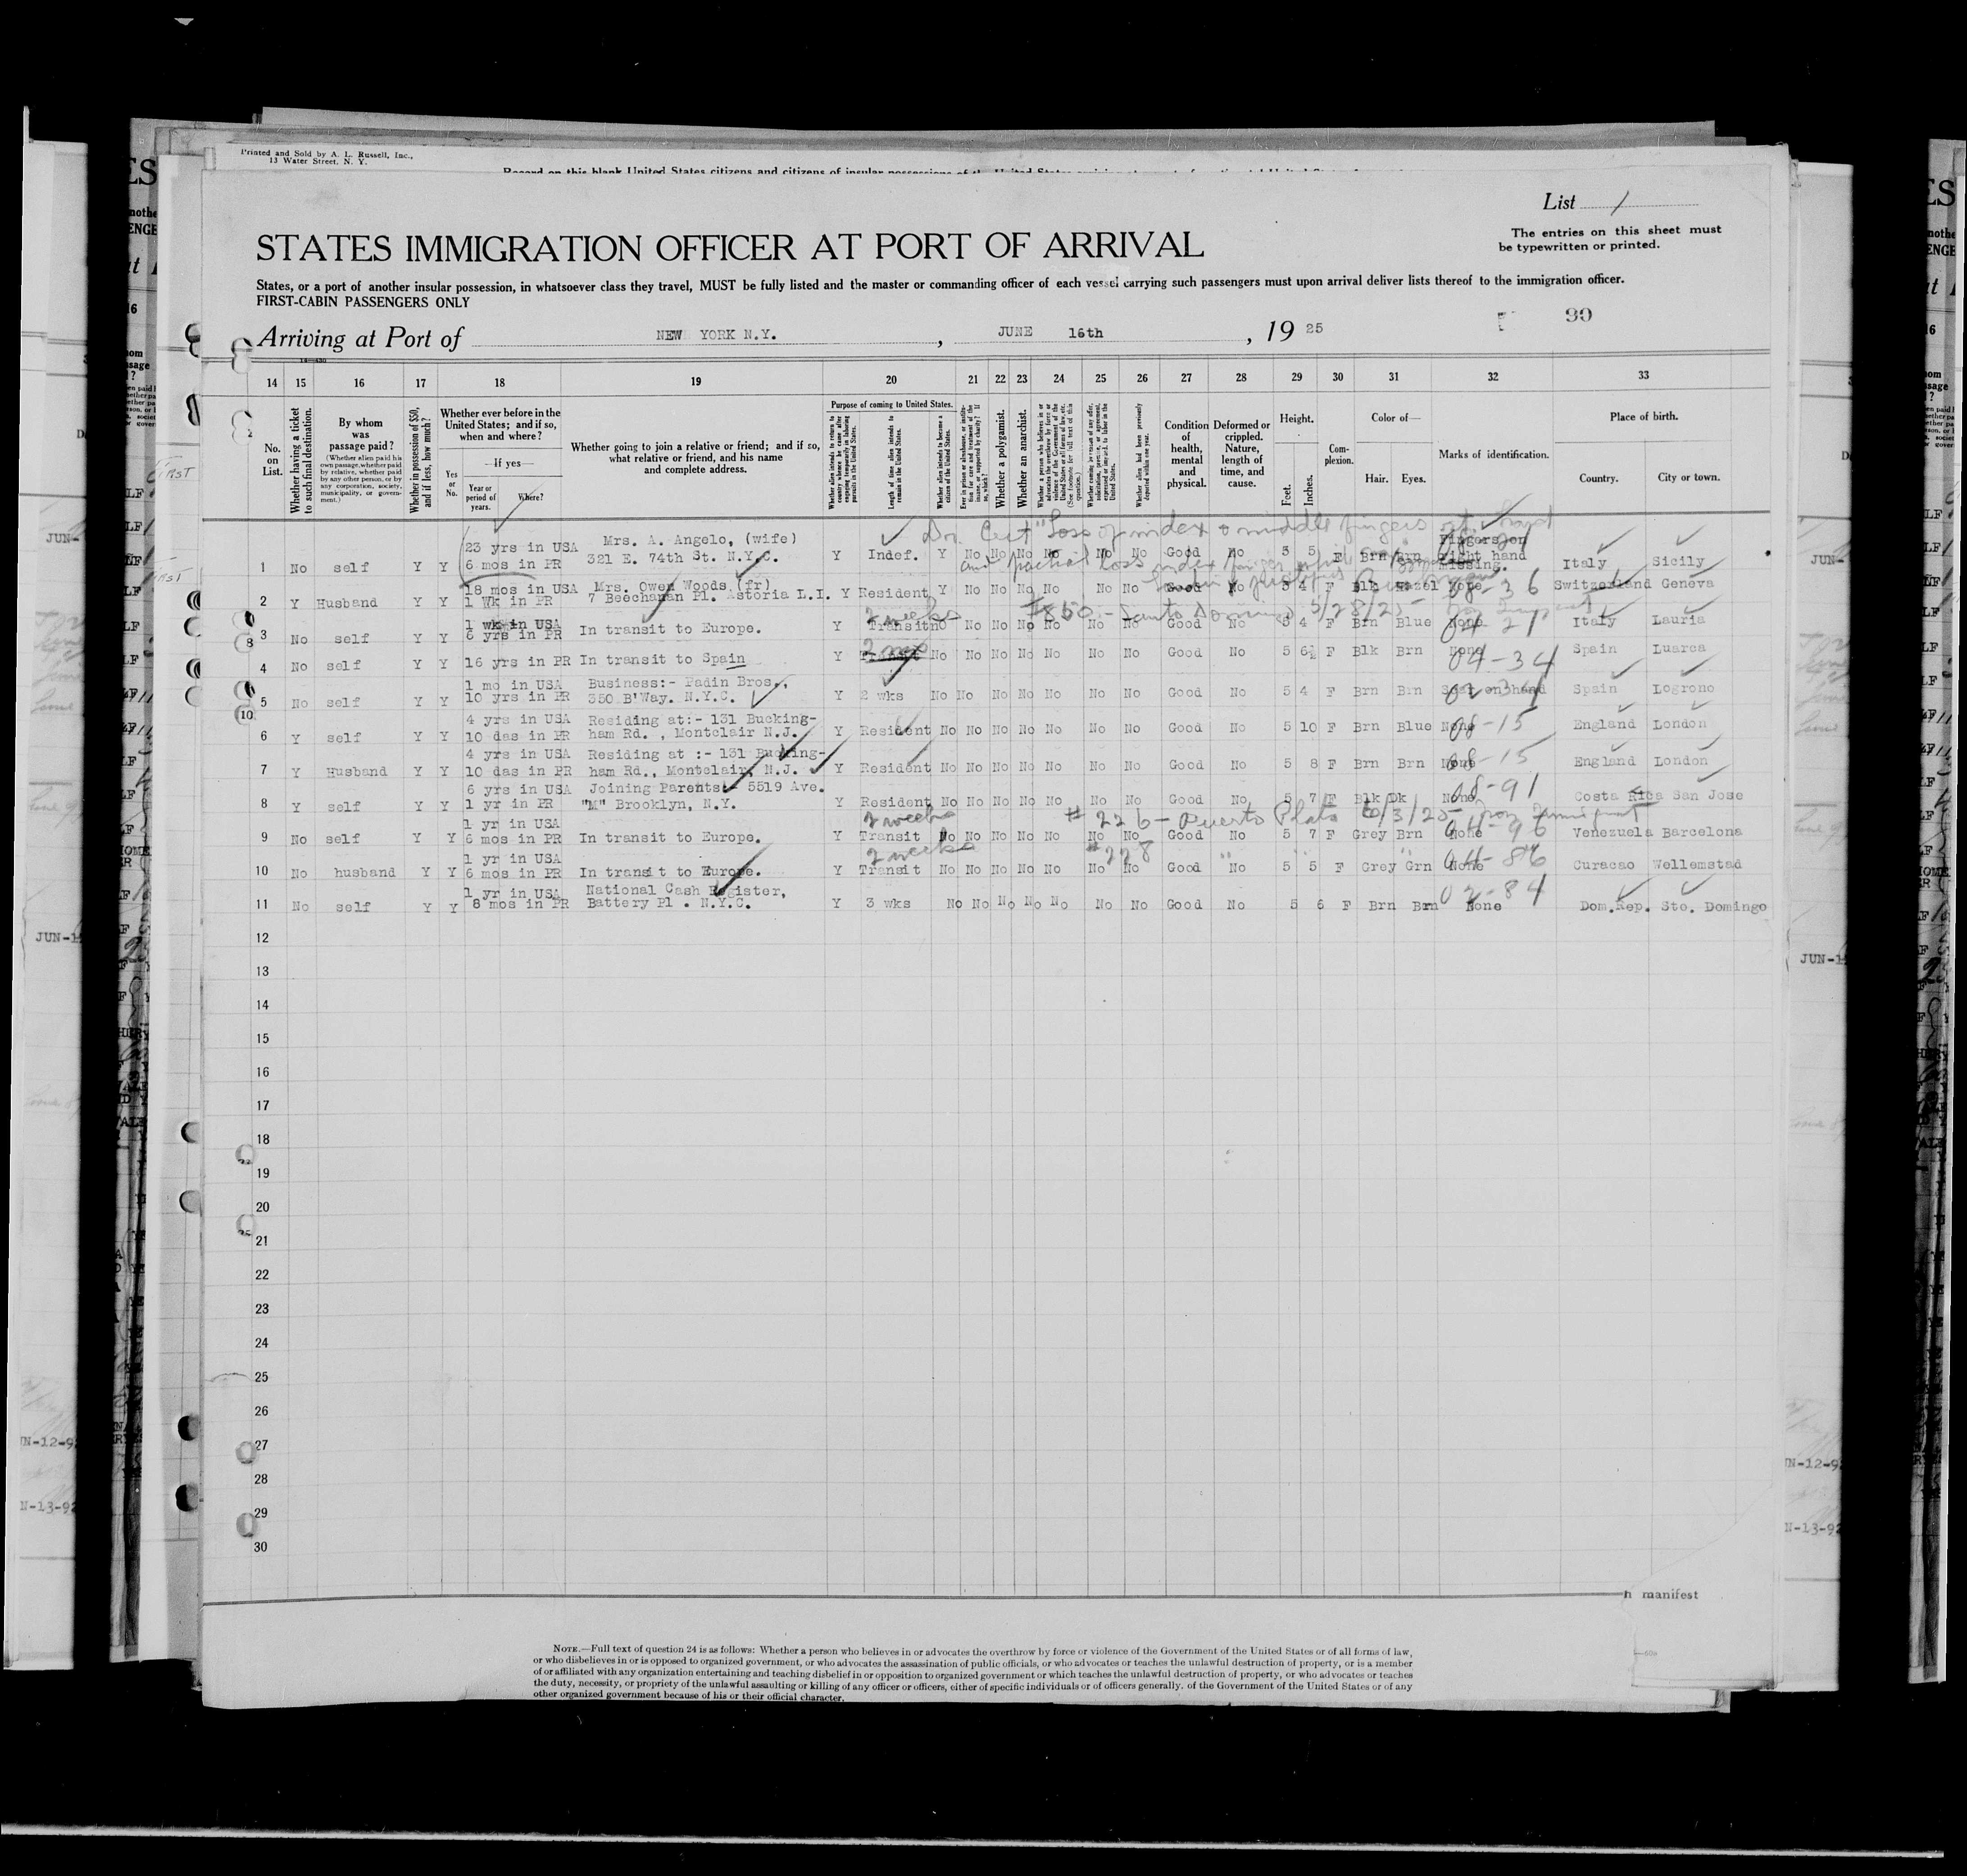 Printed and Sold by A. L. Russell, Inc.,
13 Water Street, N. Y.
Record on this blank United States citizens and citizens of insular possessions of the United States
List 1
The entries on this sheet must
be typewritten or printed.
STATES IMMIGRATION OFFICER AT PORT OF ARRIVAL
States, or a port of another insular possession, in whatsoever class they travel, MUST be fully listed and the master or commanding officer of each vessel carrying such passengers must upon arrival deliver lists thereof to the immigration officer.
FIRST-CABIN PASSENGERS ONLY
30
Arriving at Port of NEW YORK N.Y. , JUNE 16th , 19 25
14 15 16 17 18 19 20 21 22 23 24 25 26 27 28 29 30 31 32 33
No. on List.
Whether having a ticket to such final destination.
By whom was passage paid?
(Whether alien paid his own passage, whether paid by relative, whether paid by any other person, or by any corporation, society, municipality, or government.)
Whether in possession of $50, and if less, how much?
Whether ever before in the United States; and if so, when and where?
Yes or No.
If yes—
Year or period of years.
Where?
Whether going to join a relative or friend; and if so, what relative or friend, and his name and complete address.
Purpose of coming to United States.
Whether alien intends to return to country whence he came after engaging temporarily in laboring pursuits in the United States.
Length of time alien intends to remain in the United States.
Whether alien intends to become a citizen of the United States.
Ever in prison or almshouse, or institution for care and treatment of the insane, or supported by charity? If so, which?
Whether a polygamist.
Whether an anarchist.
Whether a person who believes in or advocates the overthrow by force or violence of the Government of the United States or all forms of law, etc. (See footnote for full text of this question.)
Whether coming by reason of any offer, solicitation, promise, or agreement, expressed or implied, to labor in the United States.
Whether alien had been previously deported within one year.
Condition of health, mental and physical.
Deformed or crippled. Nature, length of time, and cause.
Height.
Feet. Inches.
Complexion.
Color of—
Hair. Eyes.
Marks of identification.
Place of birth.
Country. City or town.
Dr. Cert "Loss of index & middle fingers rt. hand
and partial loss index finger
1 No self Y Y 23 yrs in USA 6 mos in PR Mrs. A. Angelo, (wife) 321 E. 74th St. N.Y.C. Y Indef. Y No No No No No No Good No 5 5 F Brn Brn Fingers on right hand missing. Italy Sicily
2 Y Husband Y Y 18 mos in USA 1 Wk in PR Mrs. Owen Woods (fr) 7 Beechanan Pl. Astoria L.I. Y Resident Y No No No No No No Good No 5 4 F Blk Hazel None 08-36 Switzerland Geneva
2 weeks #850 - Santo Domingo 5/28/25
3 No self Y Y 1 wk in USA 6 yrs in PR In transit to Europe. Y Transit No No No No No No No Good No 5 4 F Brn Blue None 04 21 Italy Lauria
2 mos
4 No self Y Y 16 yrs in PR In transit to Spain Y Transit No No No No No No No Good No 5 6½ F Blk Brn None 04-34 Spain Luarca
5 No self Y Y 1 mo in USA 10 yrs in PR Business:- Padin Bros., 350 B'Way. N.Y.C. Y 2 wks No No No No No No No Good No 5 4 F Brn Brn Scar on hand 02-34 Spain Logrono
6 Y self Y Y 4 yrs in USA 10 das in PR Residing at:- 131 Bucking-ham Rd. , Montclair N.J. Y Resident No No No No No No No Good No 5 10 F Brn Blue None 08-15 England London
7 Y Husband Y Y 4 yrs in USA 10 das in PR Residing at :- 131 Bucking-ham Rd., Montclair, N.J. Y Resident No No No No No No No Good No 5 8 F Brn Brn None 08-15 England London
8 Y self Y Y 6 yrs in USA 1 yr in PR Joining Parents:- 5519 Ave. "M" Brooklyn, N.Y. Y Resident No No No No No No No Good No 5 7 F Blk Dk None 08-91 Costa Rica San Jose
2 weeks #226 - Puerto Plata 6/3/25 - Non Immigrant
9 No self Y Y 1 yr in USA 6 mos in PR In transit to Europe. Y Transit No No No No No No No Good No 5 7 F Grey Brn None 04-96 Venezuela Barcelona
2 weeks #228 " " "
10 No husband Y Y 1 yr in USA 6 mos in PR In transit to Europe. Y Transit No No No No No No No Good No 5 5 F Grey Grn None 04-86 Curacao Wellemstad
11 No self Y Y 1 yr in USA 8 mos in PR National Cash Register, Battery Pl . N.Y.C. Y 3 wks No No No No No No No Good No 5 6 F Brn Brn None 02-84 Dom.Rep. Sto. Domingo
12
13
14
15
16
17
18
19
20
21
22
23
24
25
26
27
28
29
30
n manifest
NOTE.—Full text of question 24 is as follows: Whether a person who believes in or advocates the overthrow by force or violence of the Government of the United States or of all forms of law,
or who disbelieves in or is opposed to organized government, or who advocates the assassination of public officials, or who advocates or teaches the unlawful destruction of property, or is a member
of or affiliated with any organization entertaining and teaching disbelief in or opposition to organized government or which teaches the unlawful destruction of property, or who advocates or teaches
the duty, necessity, or propriety of the unlawful assaulting or killing of any officer or officers, either of specific individuals or of officers generally, of the Government of the United States or of any
other organized government because of his or their official character.